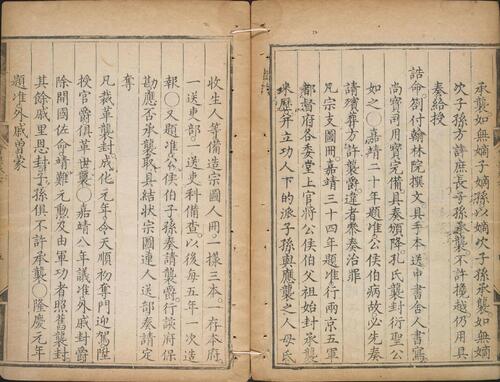 承襲如無嫡子嫡孫以嫡次子孫承襲如無嫡
次子孫方許庶長子孫承襲不許攙越仍用具
奏給授
誥命劄付翰林院撰文具手本送中書舍人書寫
尚寶司用寶完備具奏頒降孔氏襲封衍聖公
如之○嘉靖二十年題准公侯伯病故必先奏
請殯葬方許襲爵違者參奏治罪
凡宗支圖冊嘉靖三十四年題准行兩京五軍
都督府各委堂上官將公侯伯父祖始封承襲
來歷并立功人下的派子孫與應襲之人母氏
收生人等備造宗圖人冊一樣三本一存本府
一送吏部一送吏科備查以後每五年一次造
報○又題准公侯伯子孫奏請襲爵行該府保
勘應否承襲取具結狀宗圖連人送部奏請定
奪
凡裁革襲封成化元年令天順初奪門迎駕陞
授官爵俱革世襲○嘉靖八年議准外戚封爵
除開國佐命靖難元勳及由軍功者照舊襲封
其餘戚里恩封子孫俱不許承襲○隆慶元年
題准外戚曾蒙